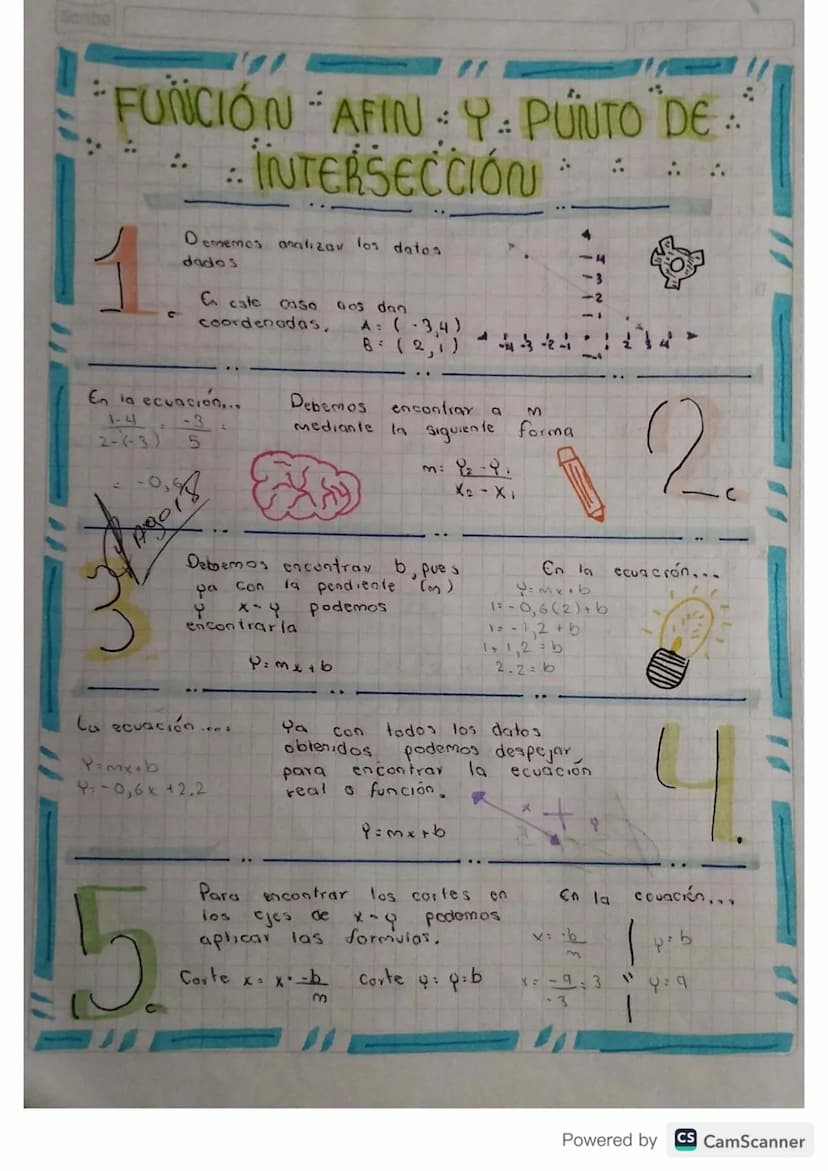 FUNCIÓN AFIN Y PUNTO DE
INTERSECCIÓN
1.
Dememos analizar los datos
dados
En este caso nos dan
coordenadas. A = (-3,4)
B = (2,1)
4
3
2
1
-4 -3 -2 -1 1 2 3 4
-1
2.
Debemos encontrar a m
mediante la siguiente forma
m = Y₂ - Y₁
X₂ - X₁
En la ecuación...
1-4 = -3 =
2-(-3) 5
= -0,6
Ago 18
3
Debemos encontrar b, pues
ya con la pendiente (m)
y x-y podemos
encontrarla
Y = mx + b
En la ecuación...
Y = mx + b
1 = -0,6(2) + b
1 = -1,2 + b
1 + 1,2 = b
2.2 = b
4.
Ya con todos los datos
obtenidos podemos despejar
para encontrar la ecuación
real o función.
Y = mx + b
x y
La ecuación....
Y = mx + b
Y = -0,6x + 2.2
5.
Para encontrar los cortes en
los ejes de x-y podemos
aplicar las formulas.
Corte x = x = -b
m
Corte y = y = b
En la ecuación...
x = -b
m
y = b
x = -9 = 3
-3
y = 9
Powered by CS CamScanner